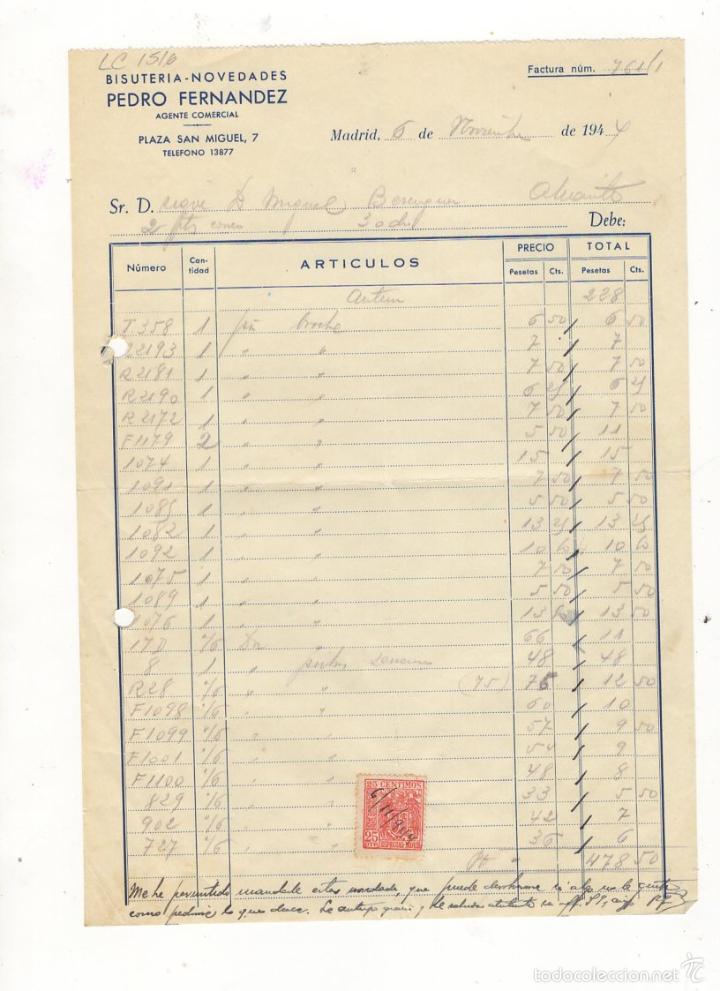 LC 1516
BISUTERIA-NOVEDADES
PEDRO FERNANDEZ
AGENTE COMERCIAL
PLAZA SAN MIGUEL, 7
TELEFONO 13877
Factura núm. 761/1
Madrid, 6 de Noviembre de 1944
Sr. D. D Miguel Berenguer Alicante
2 pts 30 d/
Debe:
Número Cantidad ARTICULOS PRECIO TOTAL
Pesetas Cts. Pesetas Cts.
228
T358 1 broche 6 50 6 50
R2193 1 " " 7 7
R2181 1 " " 7 50 7 50
R2190 1 " " 6 25 6 25
R2172 1 " " 7 50 7 50
F1179 2 " " 5 50 11
1074 1 " " 15 15
1091 1 " " 7 50 7 50
1085 1 " " 5 50 5 50
1082 1 " " 13 25 13 25
1092 1 " " 10 60 10 60
1075 1 " " 7 50 7 50
1089 1 " " 5 50 5 50
1076 1 " " 13 50 13 50
17D 1/6 Dna 66 11
8 1 " 48 48
R28 1/6 " " (75) 75 12 50
F1098 1/6 " " 60 10
F1099 1/6 " " 57 9 50
F1001 1/6 " " 54 9
F1100 1/6 " " 48 8
829 1/6 " 33 5 50
902 1/6 " 42 7
727 1/6 " 36 6
478 50
25 CENTIMOS
25
6/11/944
Me he permitido mandarle estas novedades, que puede devolverme si algo no le gusta
como pedirme lo que desee.
todocoleccion